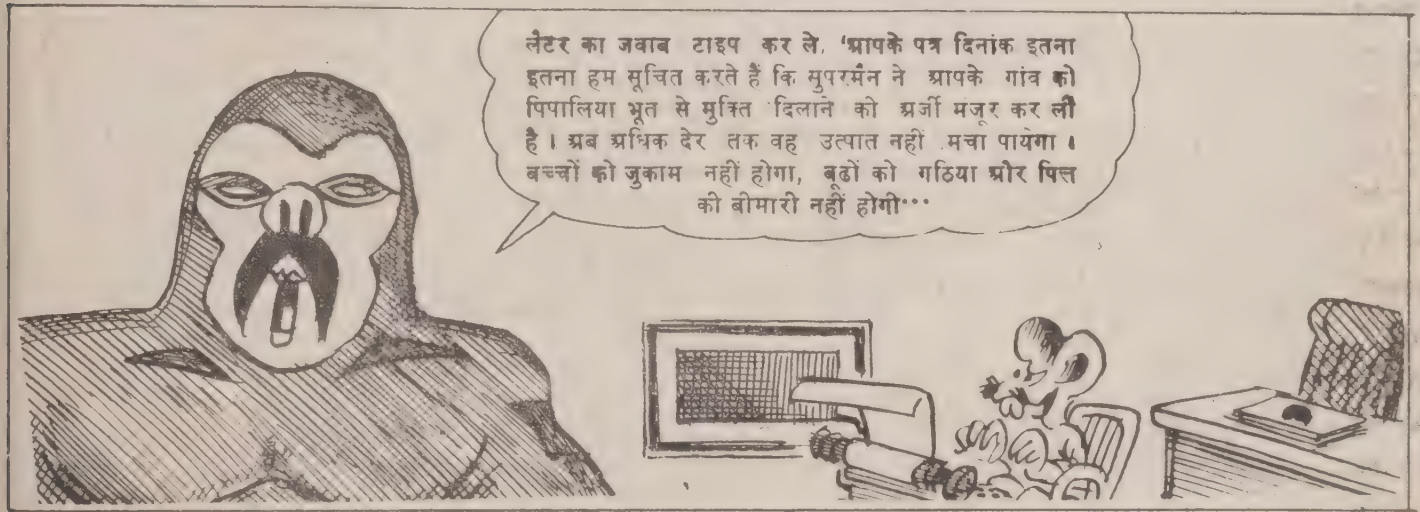 लैटर का जवाब टाइप कर ले, 'आपके पत्र दिनांक इतना
इतना हम सूचित करते हैं कि सुपरमैन ने आपके गांव को
पिपालिया भूत से मुक्ति दिलाने को अर्जी मंजूर कर ली
है । अब अधिक देर तक वह उत्पात नहीं मचा पायेगा ।
बच्चों को जुकाम नहीं होगा, बूढों को गठिया और पित्त
की बीमारी नहीं होगी···